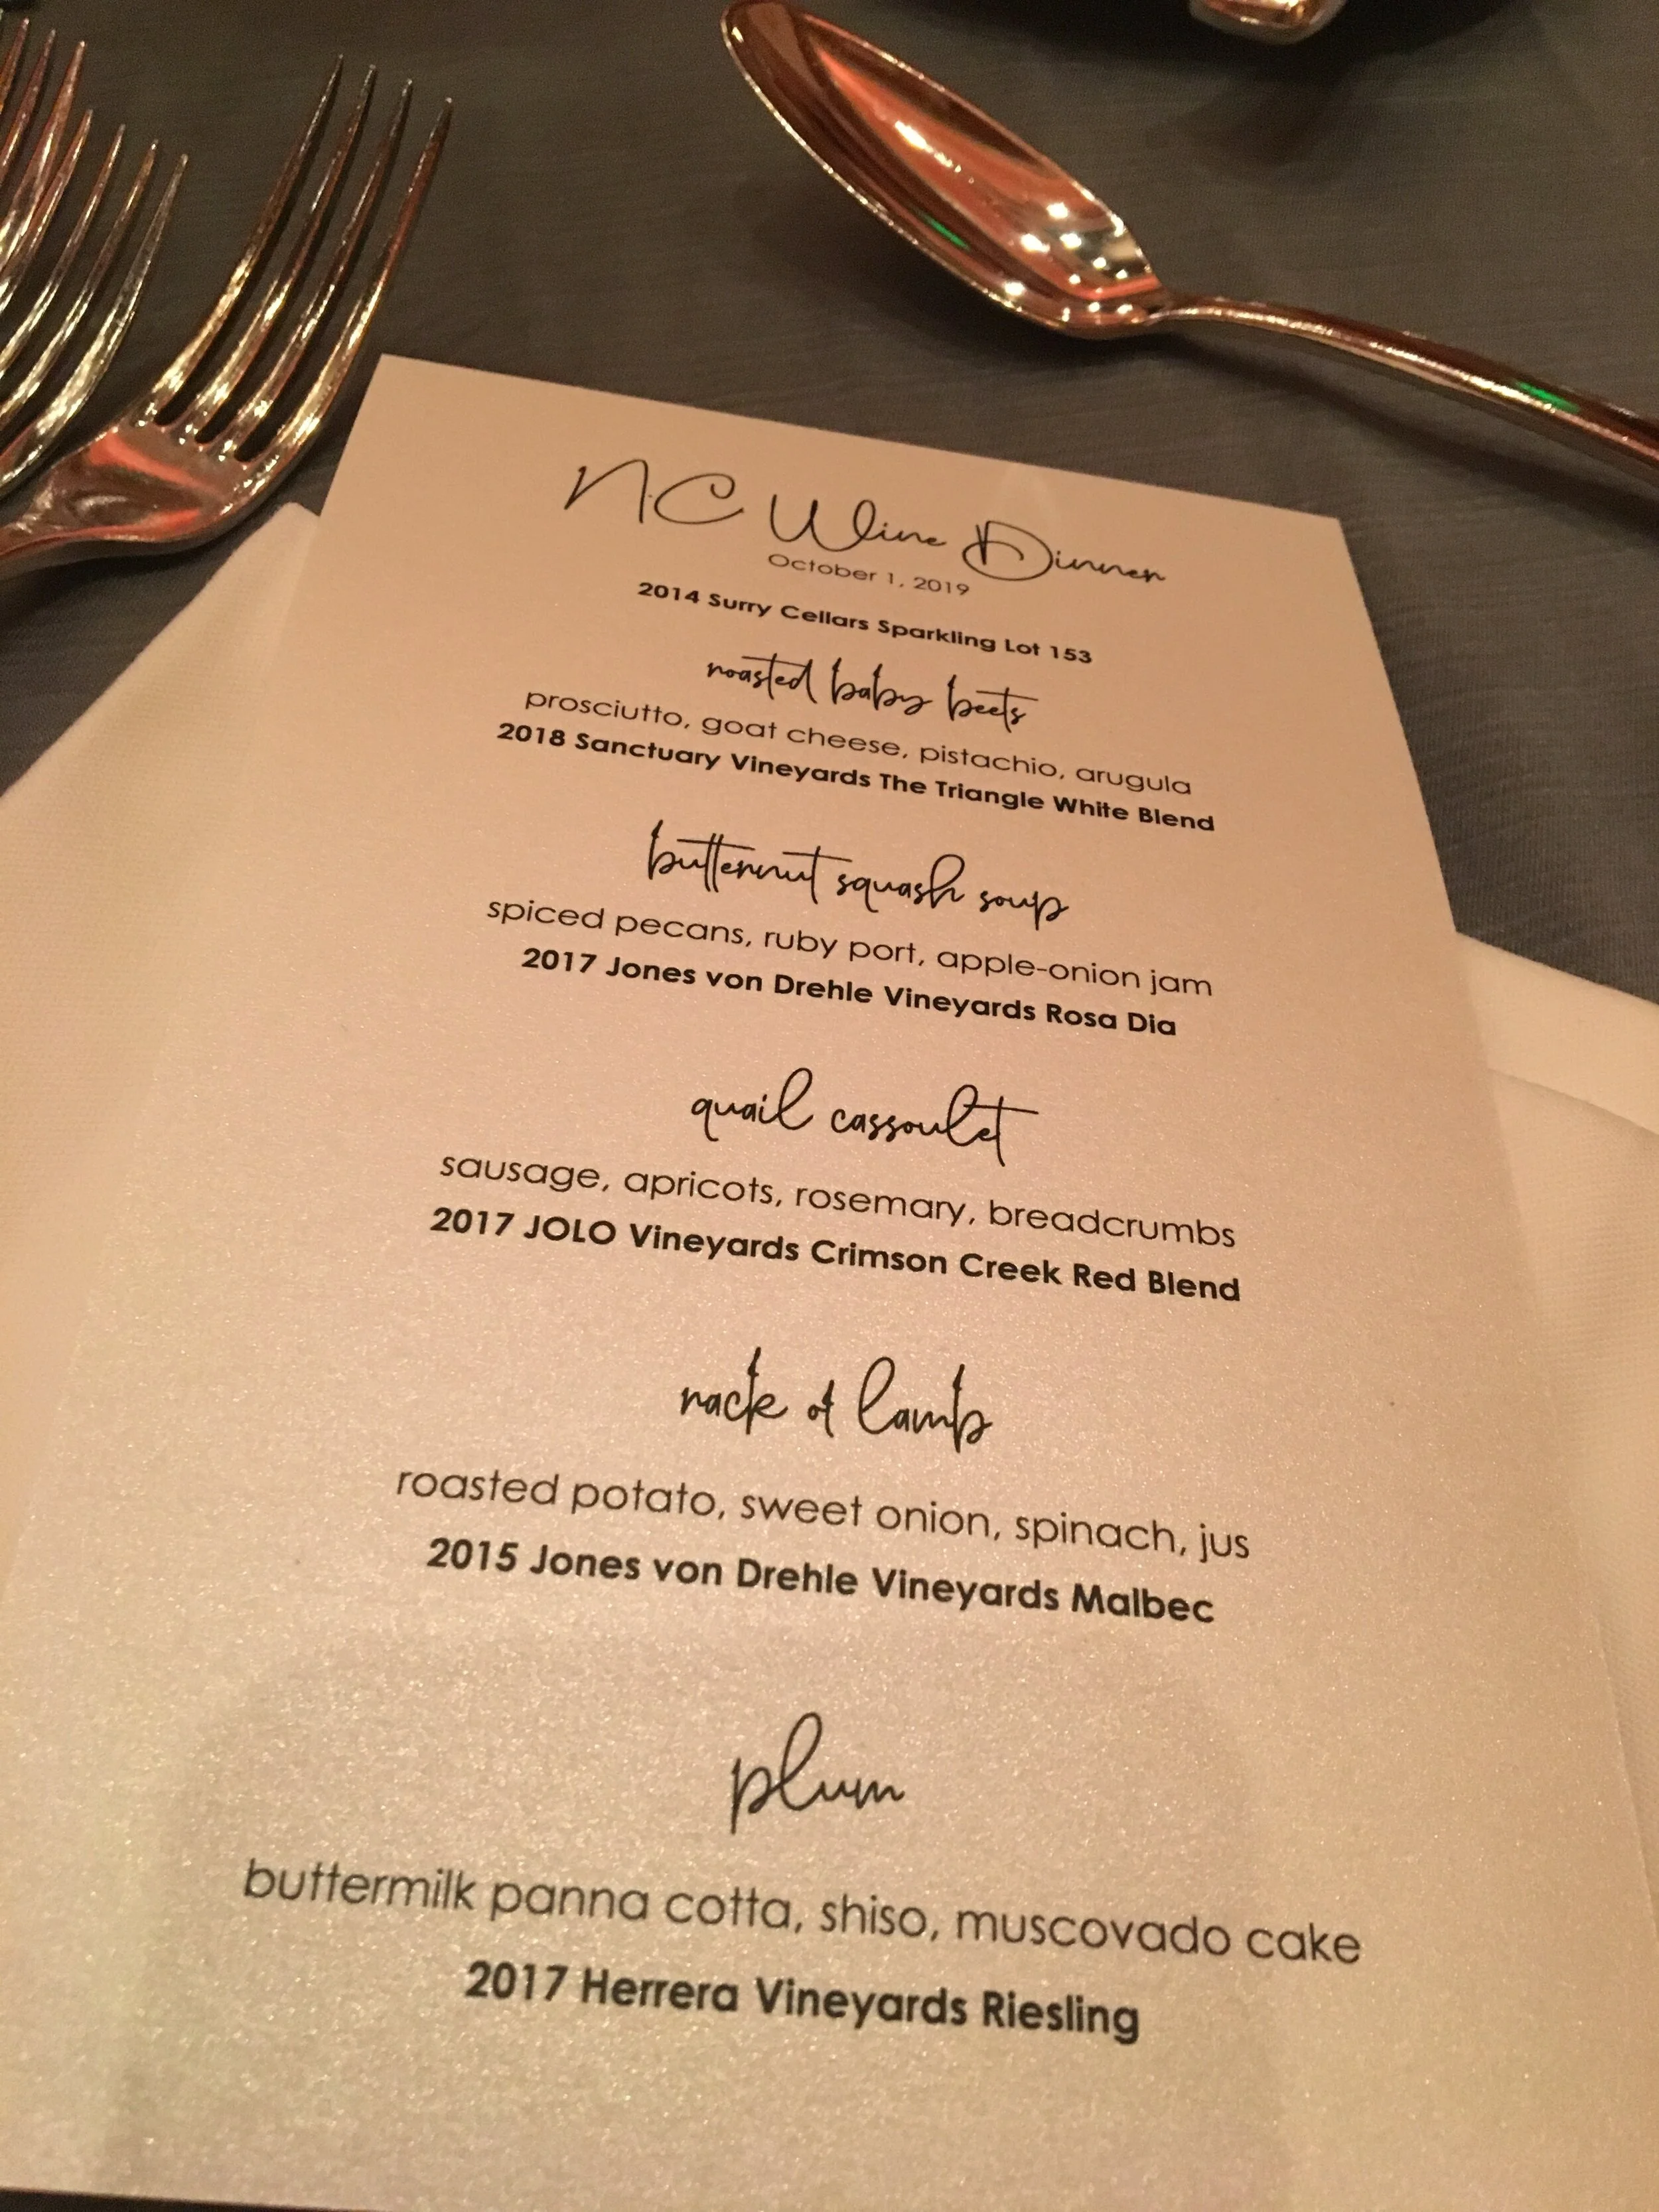 NC Wine Dinner
October 1, 2019
2014 Surry Cellars Sparkling Lot 153
roasted baby beets
prosciutto, goat cheese, pistachio, arugula
2018 Sanctuary Vineyards The Triangle White Blend
butternut squash soup
spiced pecans, ruby port, apple-onion jam
2017 Jones von Drehle Vineyards Rosa Dia
quail cassoulet
sausage, apricots, rosemary, breadcrumbs
2017 JOLO Vineyards Crimson Creek Red Blend
rack of lamb
roasted potato, sweet onion, spinach, jus
2015 Jones von Drehle Vineyards Malbec
plum
buttermilk panna cotta, shiso, muscovado cake
2017 Herrera Vineyards Riesling